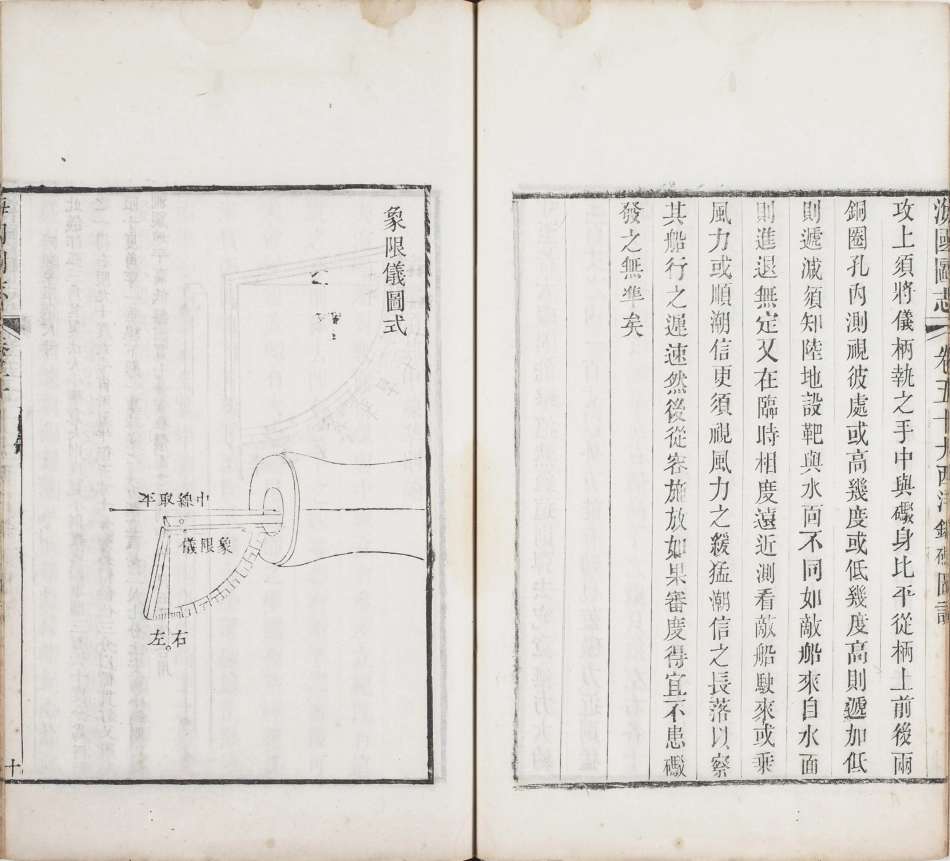 海國圖志
攻上須將儀柄執之手中與礮身比平從柄上前後兩
銅圈孔內測視彼處或高幾度或低幾度高則遞加低
則遞減須知陸地設靶與水面不同如敵船來自水面
則進退無定又在臨時相度遠近測看敵船駛來或乘
風力或順潮信更須視風力之緩猛潮信之長落以察
其船行之遲速然後從容施放如果審度得宜不患礮
發之無準矣
象限儀圖式
中線取平
象限儀
右
左
十